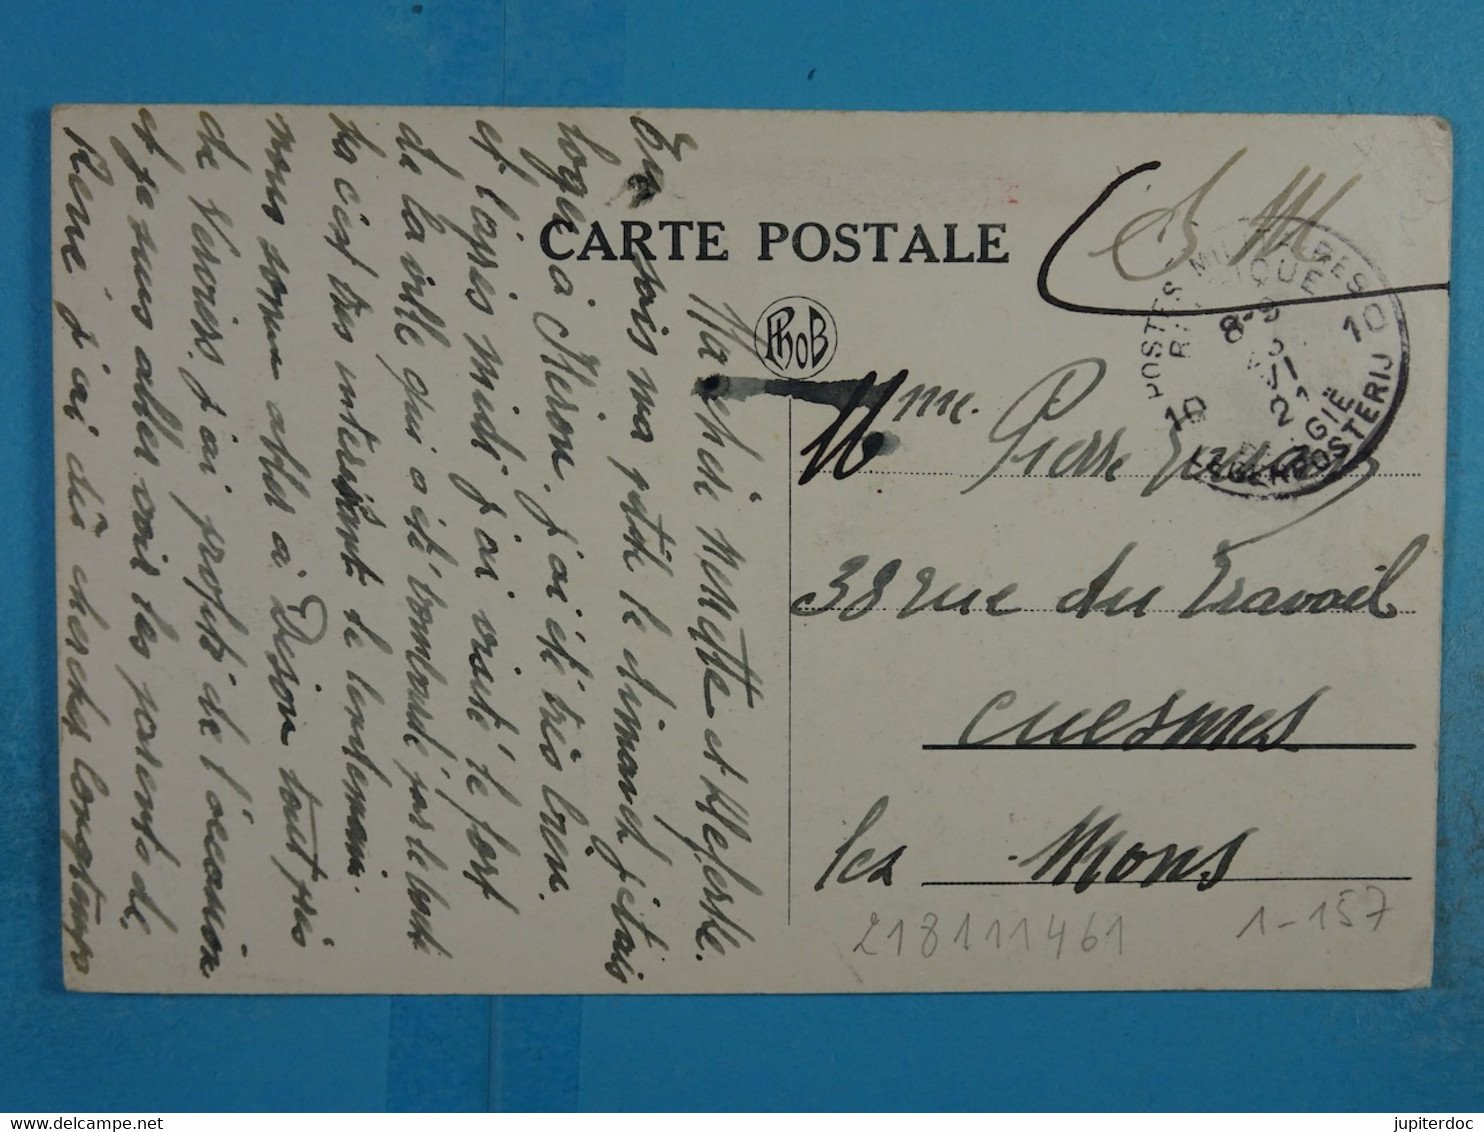 CARTE POSTALE
S M
PhoB
POSTES MILITAIRES
BELGIQUE
10 10
8-9
VI
21
BELGIE
LEGERPOSTERIJ
Mme Pierre
38 rue du Travail
Cuesmes
les Mons
218111461
1-157
Ma chère Ninette et
Tu sais ma petite le dimanche j'étais
logé à Méron. j'ai été très bien.
et l'après midi j'ai visité le fort
de la ville qui a été bombardé par le
c'est très intéressant. le lendemain
nous sommes allés à Dison tout près
de Verviers j'ai profité de l'occasion
et je suis allé voir les parents de
René j'ai dû chercher longtemps
jupiterdoc